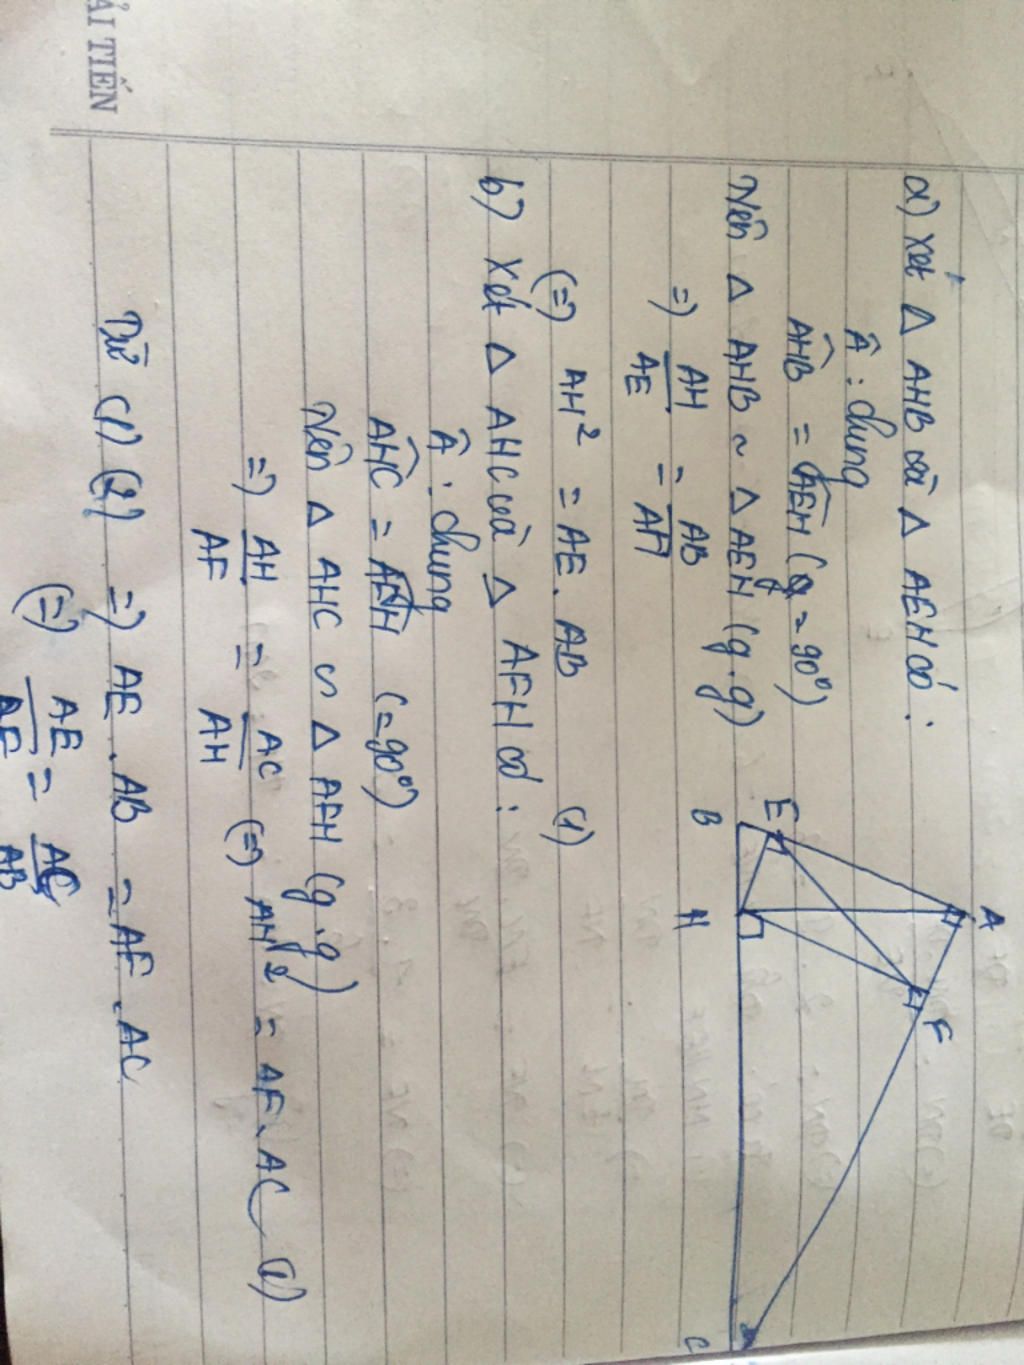 ẢI TIẾN
a) Xét Δ AHB và Δ AEH có :
Â : chung
AHB = AEH (= 90°)
Nên Δ AHB ~ Δ AEH (g.g)
=) AH/AE = AB/AH
(=) AH² = AE. AB (1)
b) Xét Δ AHC và Δ AFH có :
Â : chung
AHC = AFH (=90°)
Nên Δ AHC ∽ Δ AFH (g.g)
=) AH/AF = AC/AH (=) AH² = AF. AC (2)
Từ (1) (2) =) AE . AB = AF . AC
(=) AE/AF = AC/AB
A
E
F
B
H
C